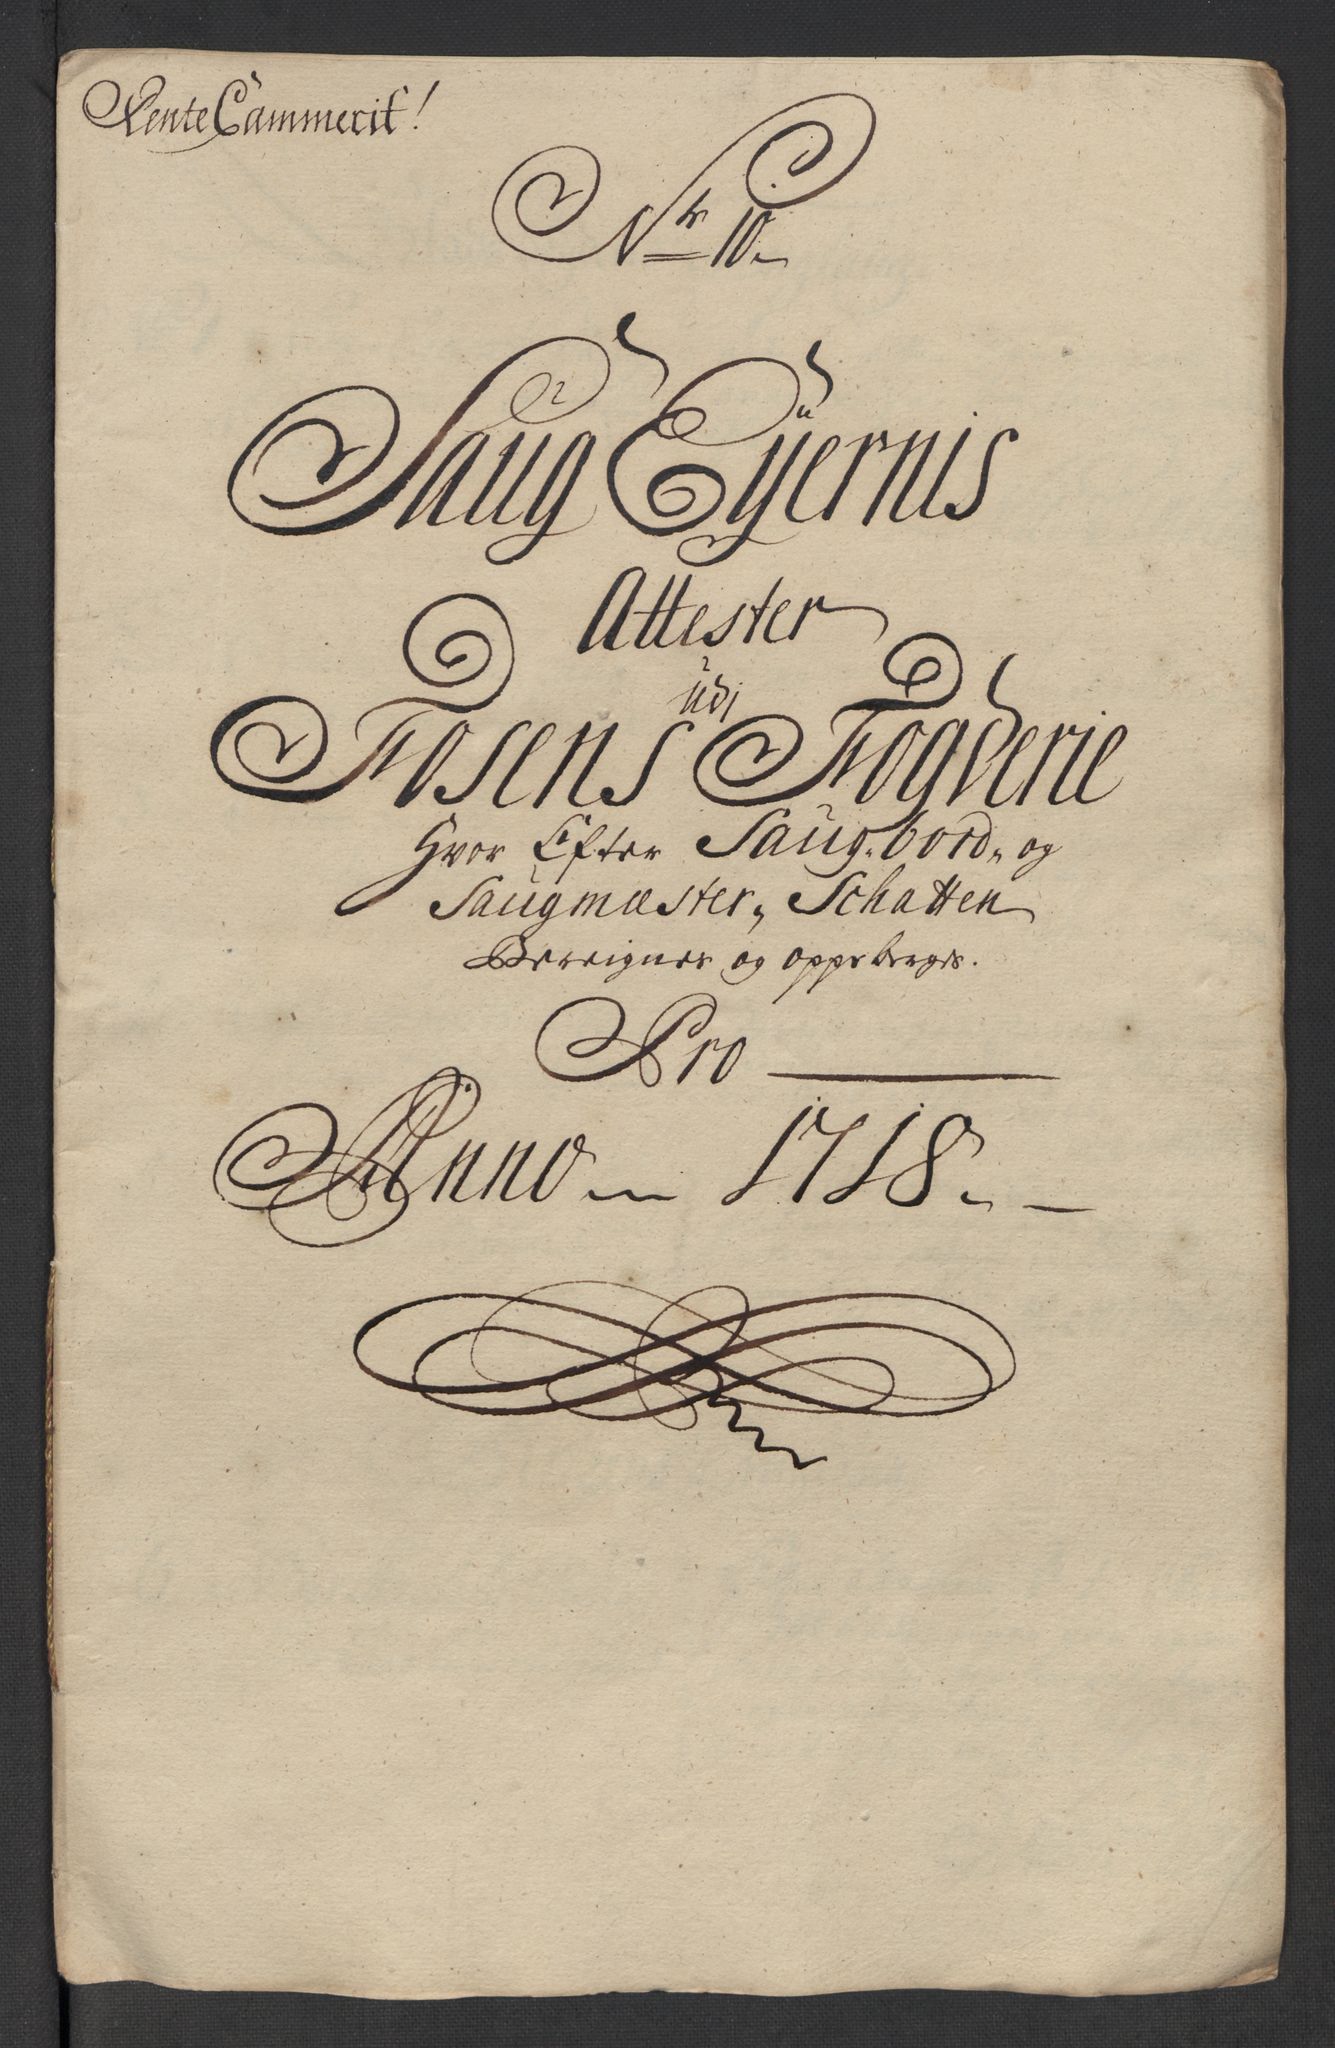 Rente Cammerit!
No 10
Saug Eÿernis
Attester
udj
Fosens Fogderie
Hvor Efter Saug-bord- og
Saugmæster, Schatten
Bereignes og oppeberges.
Pro
Anno 1718